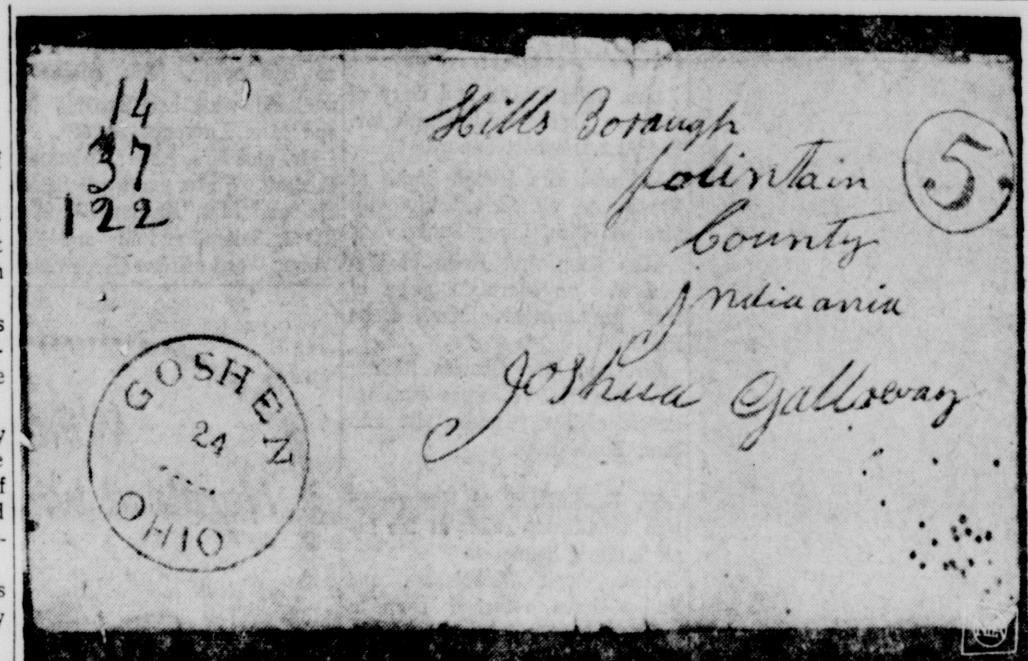 14
37
122
Hills Boraugh
fountain
County
Indiaania
Joshua Galloway
5
GOSHEN
24
OHIO